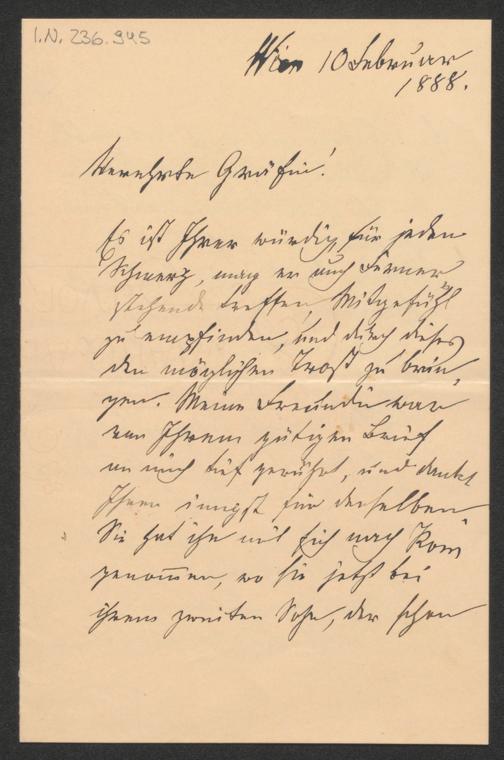 I.N. 236.945
Wien 10 Februar
1888.
Verehrte Gräfin!
Es ist Ihrer würdig, für jeden
Schmerz, mag er auch Ferner
stehende treffen, Mitgefühl
zu empfinden, und durch dieses
den möglichen Trost zu brin
gen. Meine Freundin war
von Ihrem gütigen Brief
an mich tief gerührt, und dankt
Ihnen innigst für denselben
Sie hat ihn mit sich nach Rom
genom̄en, wo sie jetzt bei
ihrem zweiten Sohn, der schon